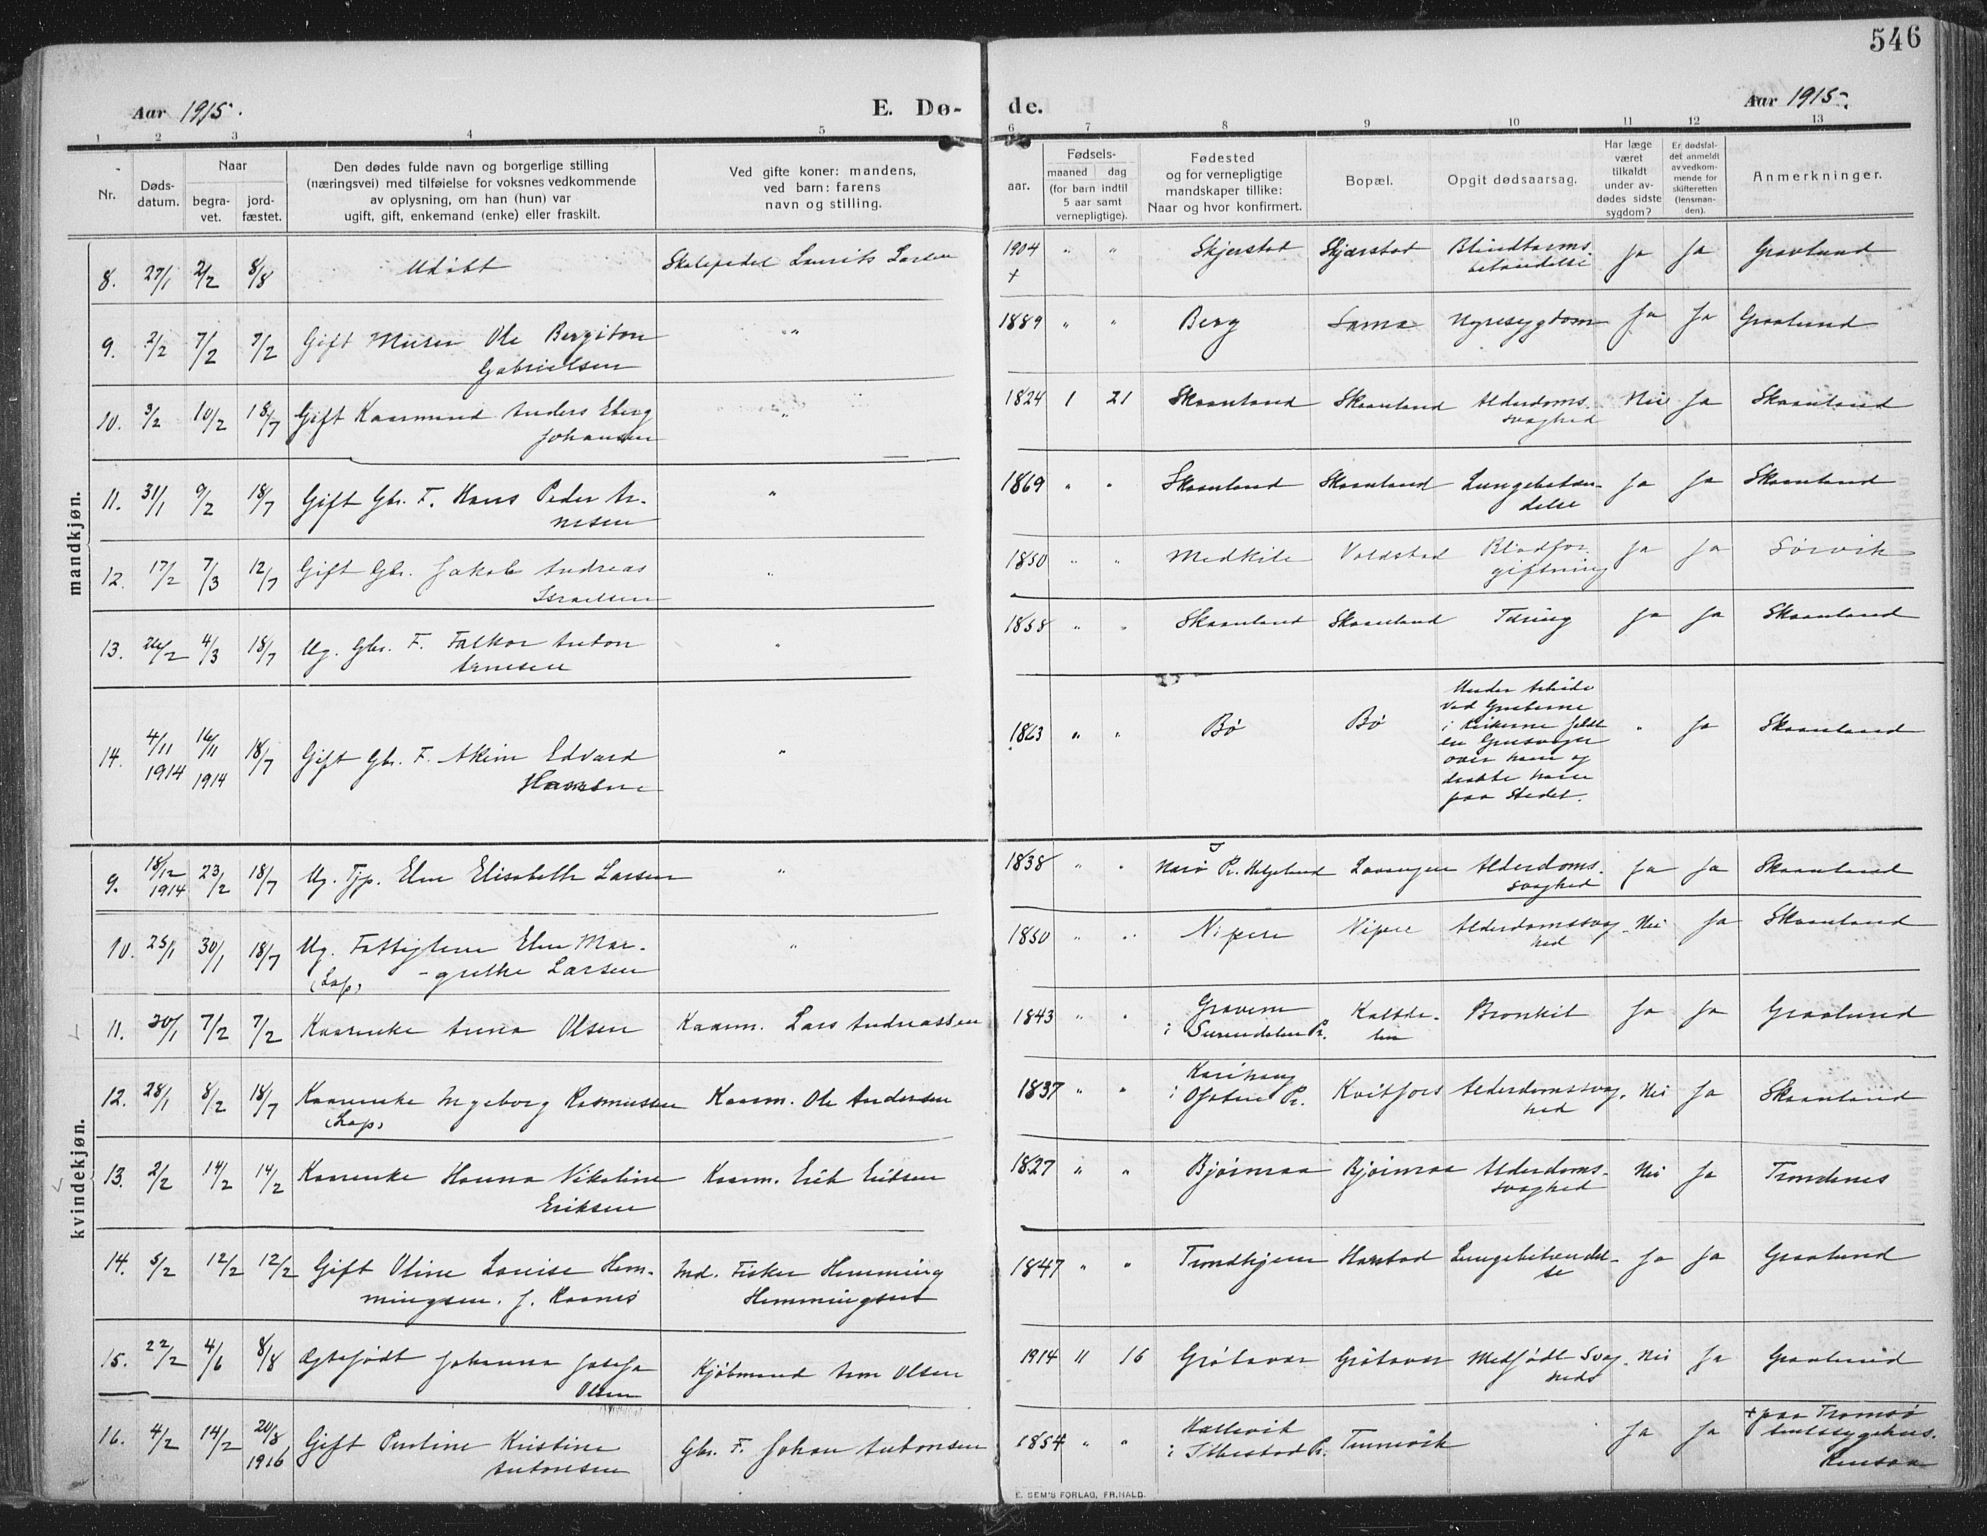 546
Aar 1915.
E. Dø-
de.
Aar 1915.
1 2 3 4 5 6 7 8 9 10 11 12 13
Nr.
Døds-
datum.
Naar
begra-
vet.
jord-
fæstet.
Den dødes fulde navn og borgerlige stilling
(næringsvei) med tilføielse for voksnes vedkommende
av oplysning, om han (hun) var
ugift, gift, enkemand (enke) eller fraskilt.
Ved gifte koner: mandens,
ved barn: farens
navn og stilling.
aar.
Fødsels-
maaned dag
(for barn indtil
5 aar samt
vernepligtige).
Fødested
og for vernepligtige
mandskaper tillike:
Naar og hvor konfirmert.
Bopæl.
Opgit dødsaarsag.
Har læge
været
tilkaldt
under av-
dødes sidste
sygdom?
Er dødsfal-
det anmeldt
av vedkom-
mende for
skifteretten
(lensman-
den).
Anmerkninger.
mandkjøn.
8. 27/1 2/2 8/8 Udøbt Laurits Larsen 1904 " " Skjerstad Skjærstad Blindtarms
+ betændelse Ja Ja Gravlund
9. 2/2 7/2 7/2 Gift Murer Ole Bergiton " 1889 " " Berg Sama Nyresygdom Ja Ja Graalund
Gabrielsen
10. 3/2 10/2 18/7 Gift Kaarmand Anders Eberg " 1824 1 21 Skaanland Skaanland Alderdoms- Nei Ja Skaanland
Johansen svaghed
11. 31/1 9/2 18/7 Gift Gbr. F. Hans Peder Ar- " 1869 " " Skaanland Skaanland Lungebetæn- Ja Ja Skaanland
nesen delse
12. 17/2 7/3 12/7 Gift Gbr. Jakob Andreas " 1850 " " Medkile Voldstad Blodfor- Ja Ja Sørvik
Israelsen giftning
13. 26/2 4/3 18/7 Ug. Gbr. F. Falkor Anton " 1858 " " Skaanland Skaanland Tæring Ja Ja Skaanland
Arnesen
14. 4/11 1914 16/11 1914 18/7 Gift Gbr. F. Akim Edvard " 1863 " " Bø Bø " Ja Skaanland
Hansen
Under Arbeide
ved Gruberne
i Kirkerne faldt
en Grusvogn
over ham og
dræbte ham
paa Stedet.
kvindekjøn.
9. 18/12 1914 23/2 18/7 Ug. Tjp. Elen Elisabeth Larsen " 1838 " " Pr. Helgeland Lavangen Alderdoms- Ja Ja Skaanland
svaghed
10. 25/1 30/1 18/7 Ug. Fattiglem Elen Mar- " 1850 " " Nipen Nipen Alderdomssvag- Nei Ja Skaanland
(Lap) -grethe Larsen hed
11. 30/1 7/2 7/2 Kaarenke Anna Olsen Kaarm. Lars Andreassen 1843 " " Gravem Kaltde- Bronkit Ja Ja Graalund
i Surendalen Pr. len
12. 28/1 8/2 18/7 Kaarenke Ingeborg Rasmussen Kaarm. Ole Andersen 1837 " " Karihaug Kvitfors Alderdomssvag- Nei Ja Skaanland
(Lap) i Ofoten Pr. hed
13. 2/2 14/2 14/2 Kaarenke Hanna Nikoline Kaarm. Erik Eriksen 1827 " " Bjørnraa Bjørnraa Alderdoms- Nei Ja Trondenes
Eriksen svaghed
14. 5/2 12/2 12/2 Gift Oline Lovise Hem- Md. Fisker Hemming 1847 " " Trondhjem Harstad Lungebetændel- Ja Ja Graalund
mingsen. f. Haanes Hemmingsen se
15. 22/2 4/6 8/8 Ægtefødt Johanna Josefa Kjøbmand Arn Olsen 1914 11 16 Grøtavær Grøtavær Medfødt Svag- Nei Ja Graalund
Olsen hed
16. 4/2 14/2 20/8 1916 Gift Pauline Kristine Gbr. F. Johan Antonsen 1854 " " Kallevik Ja Ja + paa Tromsø
Antonsen i Ibbestad Pr. Amtssygehus.
E. SEM'S FORLAG, FR.HALD.